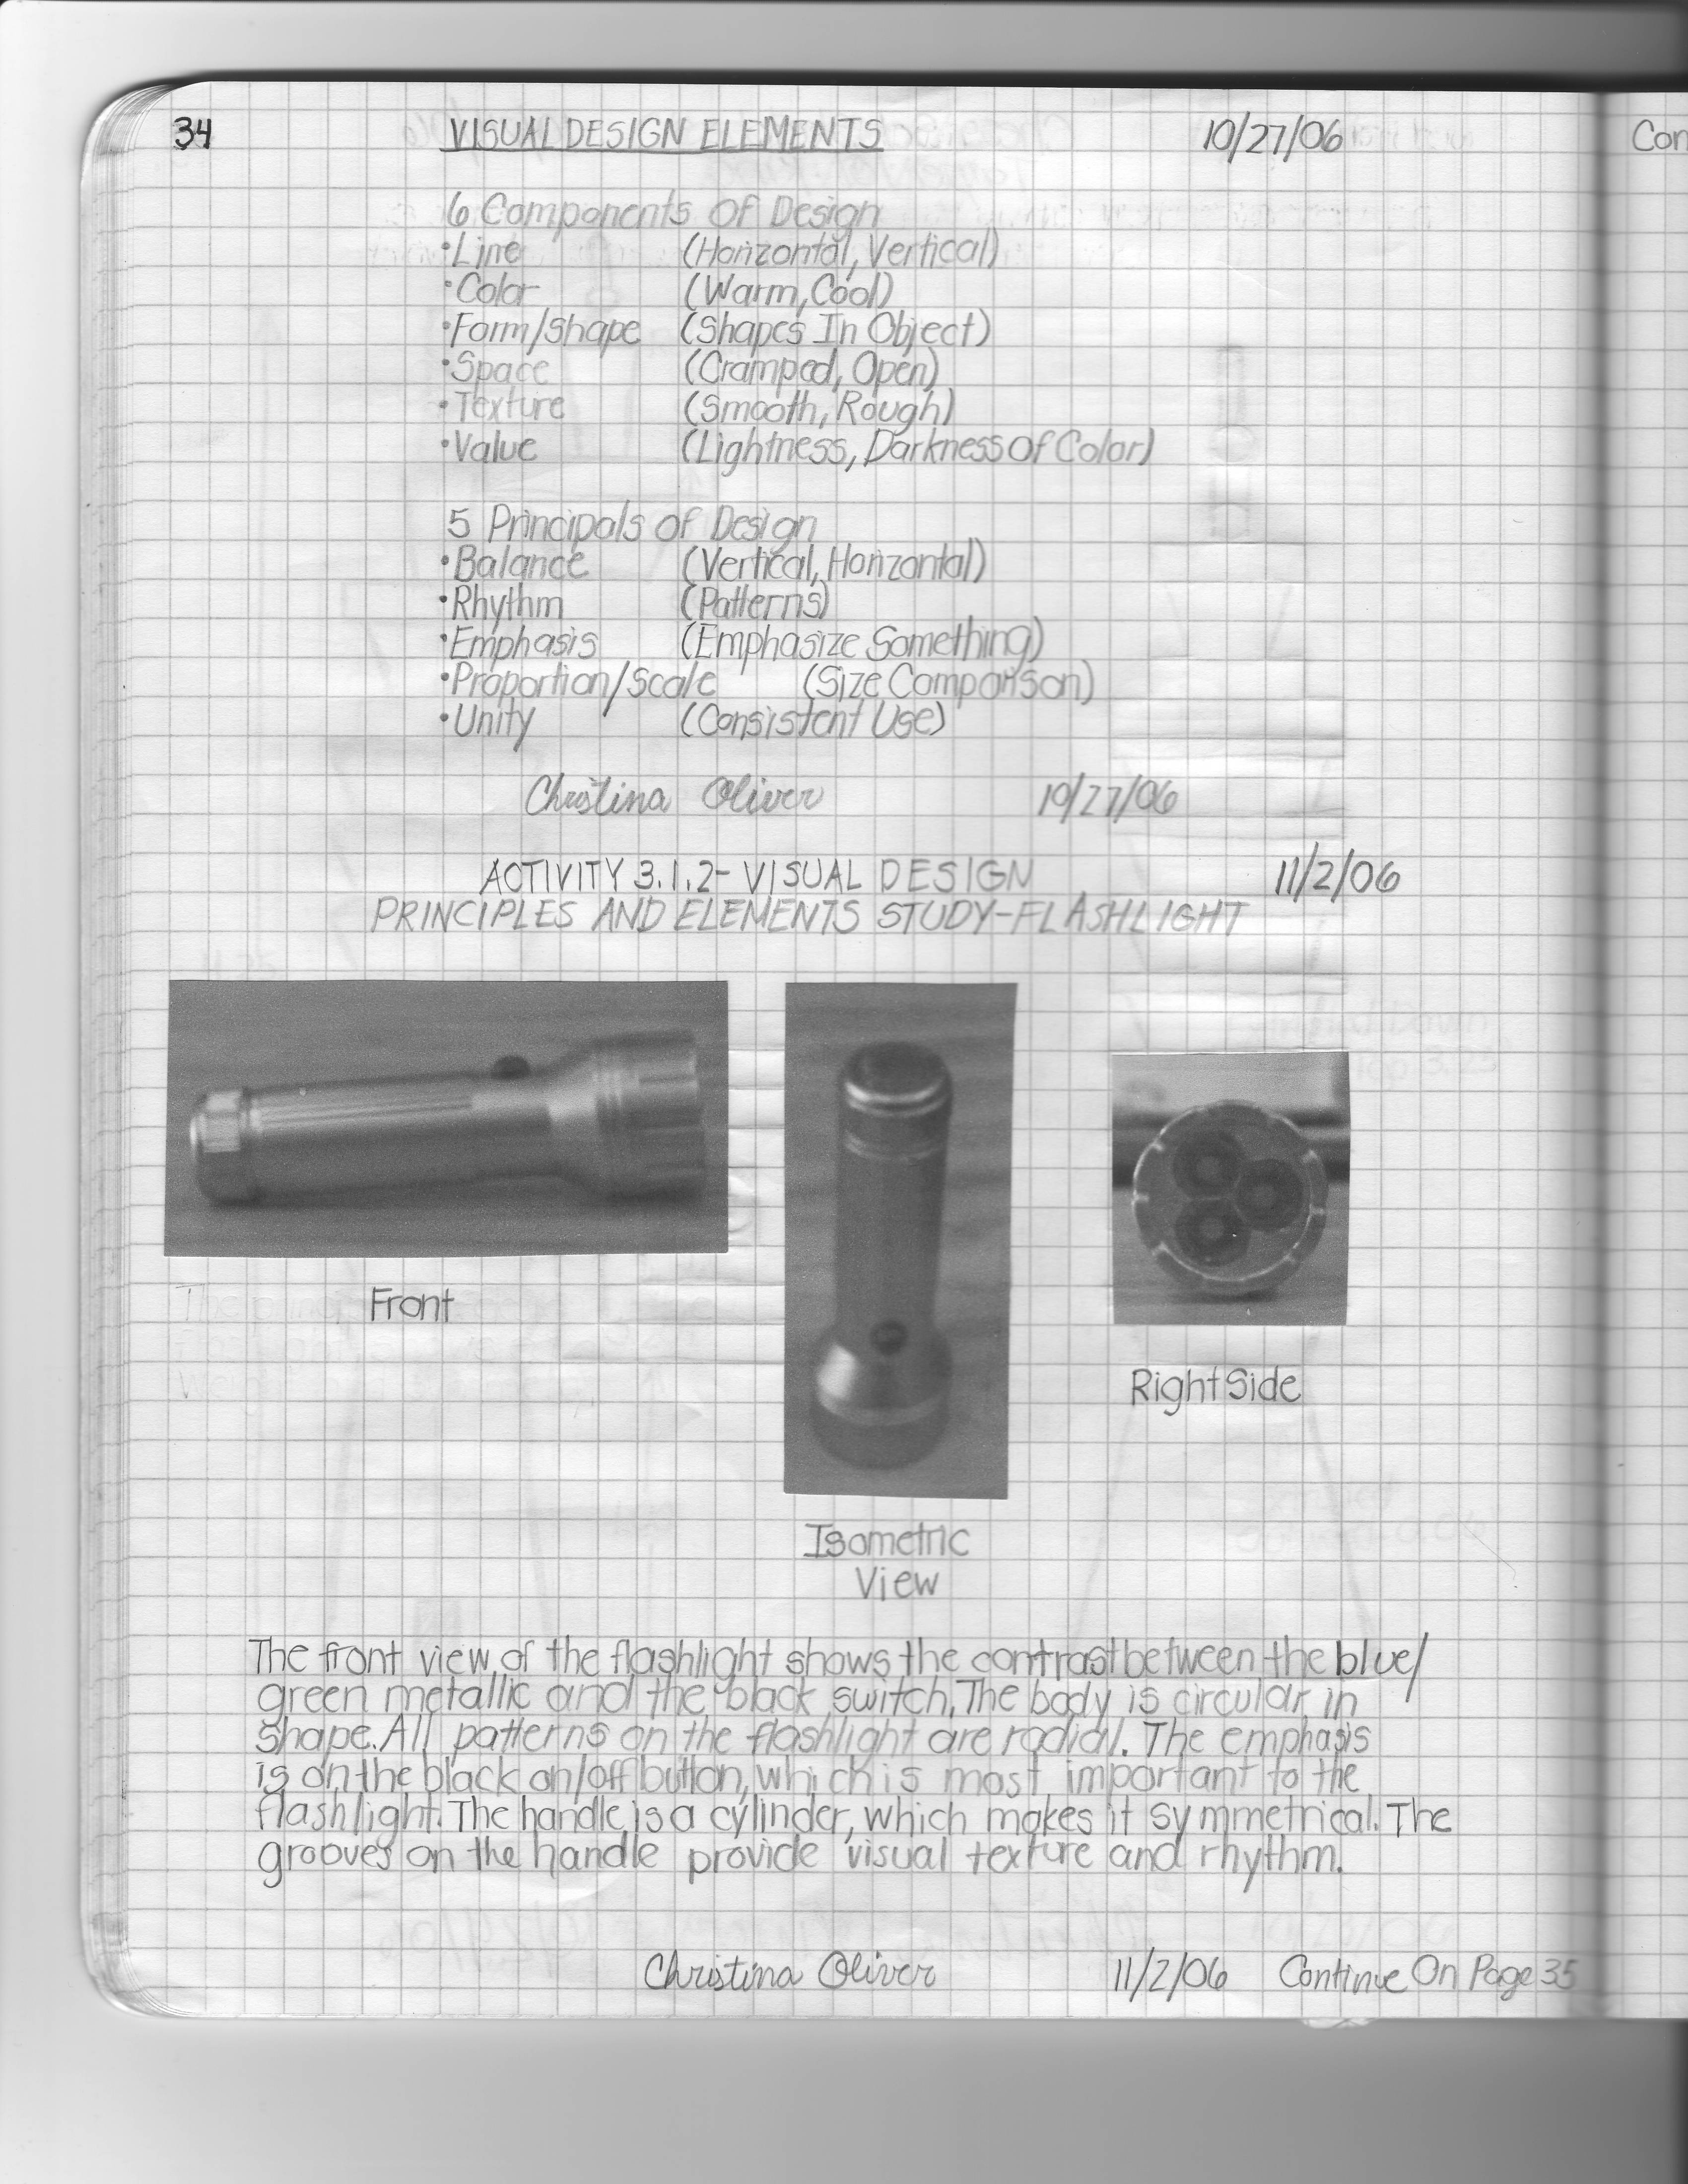 34 VISUAL DESIGN ELEMENTS 10/27/06
Con
6 Components Of Design
•Line (Horizontal, Vertical)
•Color (Warm, Cool)
•Form/Shape (Shapes In Object)
•Space (Cramped, Open)
•Texture (Smooth, Rough)
•Value (Lightness, Darkness Of Color)
5 Principals of Design
•Balance (Vertical, Horizontal)
•Rhythm (Patterns)
•Emphasis (Emphasize Something)
•Proportion/Scale (Size Comparison)
•Unity (Consistent Use)
Christina Oliver 10/27/06
ACTIVITY 3.1.2- VISUAL DESIGN 11/2/06
PRINCIPLES AND ELEMENTS STUDY-FLASHLIGHT
Front
Right Side
Isometric
View
The front view of the flashlight shows the contrast between the blue/
green metallic and the black switch. The body is circular in
shape. All patterns on the flashlight are radial. The emphasis
is on the black on/off button, which is most important to the
flashlight. The handle is a cylinder, which makes it symmetrical. The
grooves on the handle provide visual texture and rhythm.
Christina Oliver 11/2/06 Continue On Page 35